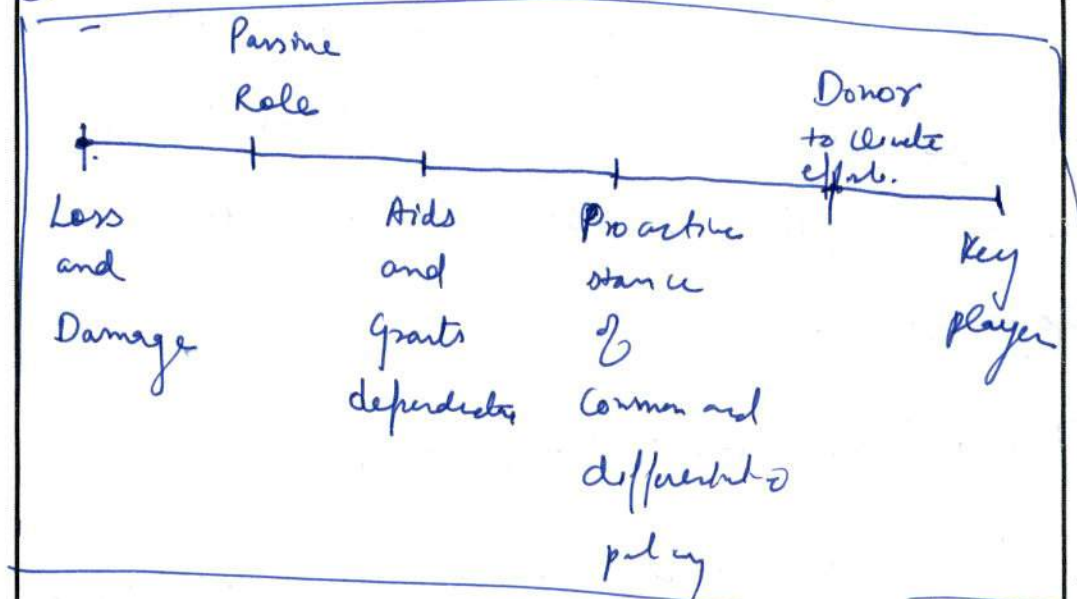 Passive
Role
Donor
to climate
efforts.
Loss
and
Damage
Aids
and
Grants
Proactive
stance
of
Common and
policy
Key
player